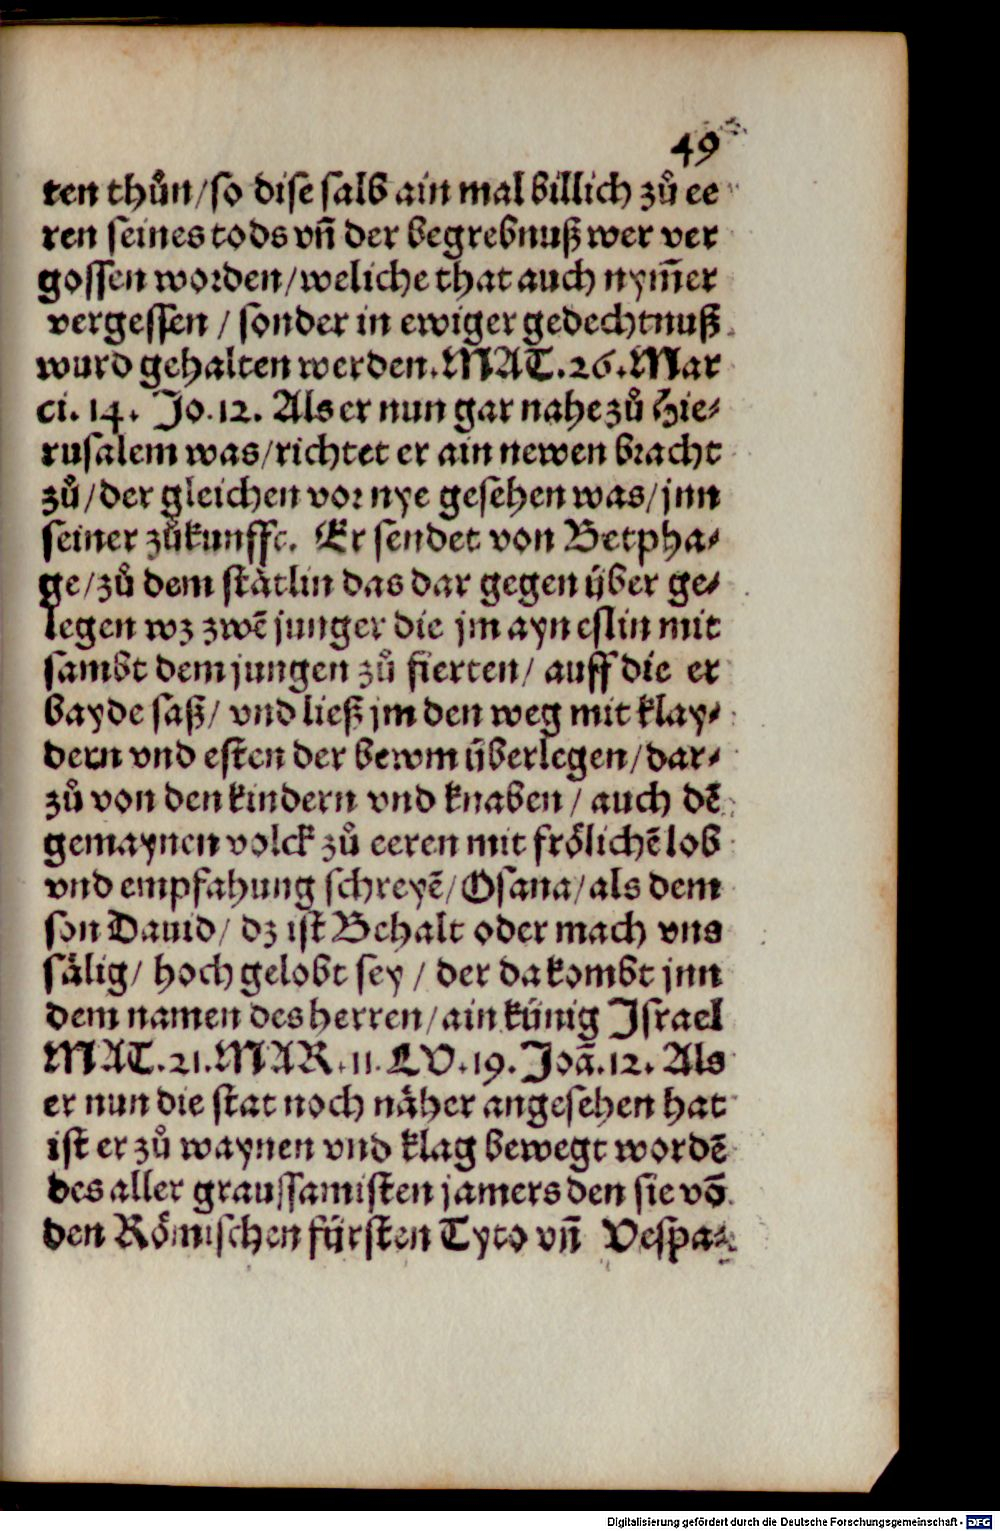 49
ten thůn/so dise salb ain mal billich zů ee
ren seines tods vñ der begrebnuß wer ver
gossen worden/weliche that auch nym̃er
vergessen / sonder in ewiger gedechtnuß
wurd gehalten werden. MAT. 26. Mar
ci. 14. Jo. 12. Als er nun gar nahe zů Hie⸗
rusalem was/richtet er ain newen bracht
zů/der gleichen vor nye gesehen was/jnn
seiner zůkunfft. Er sendet von Betpha⸗
ge/zů dem stätlin das dar gegen über ge⸗
legen wz zwē junger die jm ayn eslin mit
sambt dem jungen zů fierten/ auff die er
bayde saß/ vnd ließ jm den weg mit klay⸗
dern vnd esten der bewm überlegen/dar⸗
zů von den kindern vnd knaben/ auch dē
gemaynen volck zů eeren mit frölichē lob
vnd empfahung schreyē/Osana/als dem
son Dauid/ dz ist Behalt oder mach vns
sälig/ hoch gelobt sey / der da kombt jnn
dem namen des herren/ain künig Israel
MAT. 21. MAR. 11. LV. 19. Joā. 12. Als
er nun die stat noch näher angesehen hat
ist er zů waynen vnd klag bewegt wordē
des aller graussamisten jamers den sie vō
den Römischen fürsten Tyto vñ Vespa⸗
Digitalisierung gefördert durch die Deutsche Forschungsgemeinschaft - DFG